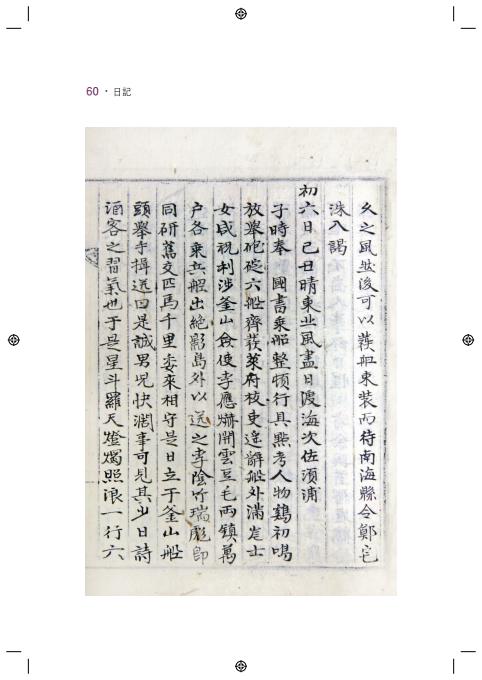 60 · 日記
久之風並後可以發船束裝而待南海縣令鄭宅
洙入謁
初六日己丑晴東北風盡日渡海次佐須浦
子時奉 國書乘船整頓行具點考人物鷄初鳴
放舉砲碇六船齊發萊府校吏逶辭船外滿庭士
女咸祝利涉釜山僉使李應爀開雲豆毛兩鎭萬
户各乘兵船出絶影島外以送之李陰竹瑞彪卽
同研舊交匹馬千里委來相守是日立于釜山船
頭擧手揖送曰是誠男兒快濶事可見其少日詩
酒客之習氣也于是星斗羅天燈燭照浪一行六